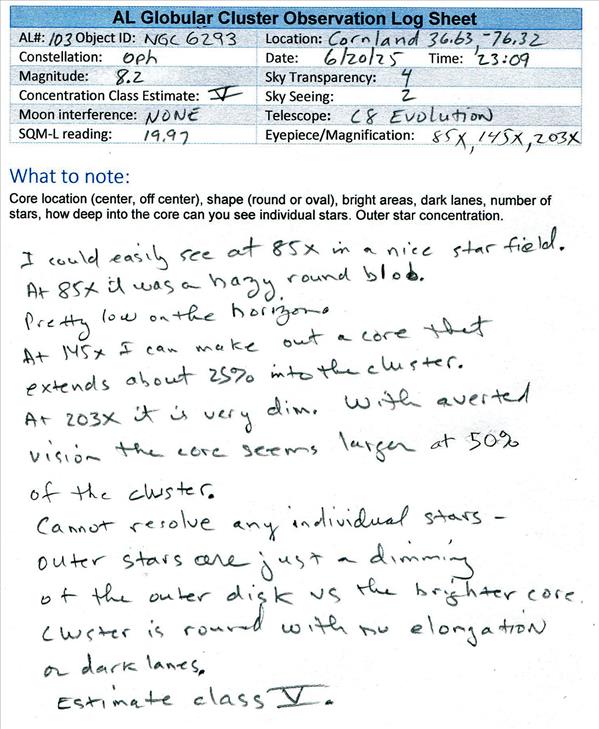 AL Globular Cluster Observation Log Sheet
AL#: 103 Object ID: NGC 6293 Location: Cornland 36.63, -76.32
Constellation: Oph Date: 6/20/25 Time: 23:09
Magnitude: 8.2 Sky Transparency: 4
Concentration Class Estimate: V Sky Seeing: 2
Moon interference: NONE Telescope: C8 Evolution
SQM-L reading: 19.97 Eyepiece/Magnification: 85X, 145X, 203X
What to note:
Core location (center, off center), shape (round or oval), bright areas, dark lanes, number of
stars, how deep into the core can you see individual stars. Outer star concentration.
I could easily see at 85X in a nice star field.
At 85X it was a hazy round blob.
Pretty low on the horizon.
At 145X I can make out a core that
extends about 25% into the cluster.
At 203X it is very dim. With averted
vision the core seems larger at 50%
of the cluster.
Cannot resolve any individual stars -
outer stars are just a dimming
of the outer disk vs the brighter core.
Cluster is round with no elongation
or dark lanes.
Estimate class V.